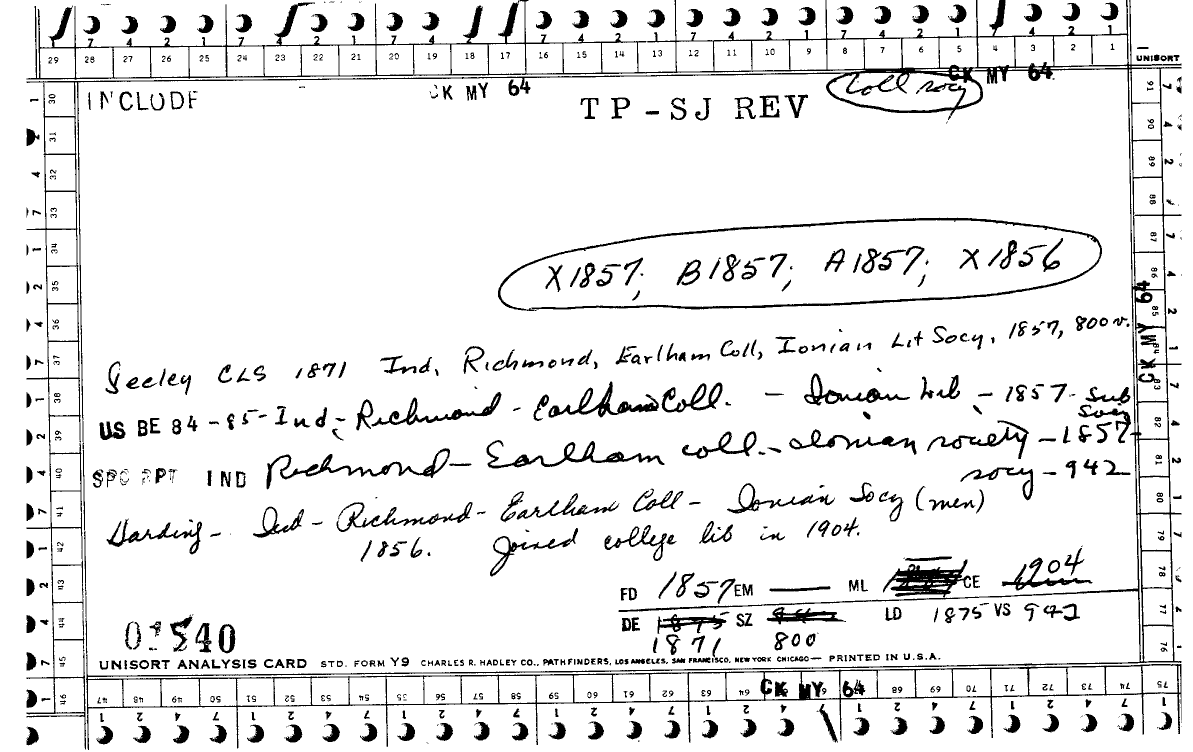 7 4 2 1 7 4 2 1 7 4 2 1 7 4 2 1 7 4 2 1 7 4 2 1
29 28 27 26 25 24 23 22 21 20 19 18 17 16 15 14 13 12 11 10 9 8 7 6 5 4 3 2 1
UNISORT
INCLUDE CK MY 64 TP-SJ REV Coll socy CK MY 64
X1857; B1857; A1857; X1856
CK MY 64
Seeley CLS 1871 Ind, Richmond, Earlham Coll, Ionian Lit Socy, 1857, 800 v.
US BE 84-85-Ind-Richmond-Earlham Coll. - Ionian Lib - 1857- Sub
Socy
SPC RPT IND Richmond- Earlham coll.- Ionian society -1857-
socy-942
Harding- Ind- Richmond- Earlham Coll- Ionian Socy (men)
1856. Joined college lib in 1904.
FD 1857 EM ML CE 1904
DE 1875 SZ LD 1875 VS 942
1871 800
01540
UNISORT ANALYSIS CARD STD. FORM Y9 CHARLES R. HADLEY CO., PATHFINDERS, LOS ANGELES, SAN FRANCISCO, NEW YORK CHICAGO— PRINTED IN U.S.A.
30 31 32 33 34 35 36 37 38 39 40 41 42 43 44 45 46
91 90 89 88 87 86 85 84 83 82 81 80 79 78 77 76 75
47 48 49 50 51 52 53 54 55 56 57 58 59 60 61 62 63 64 CK MY 64 68 69 70 71 72 73 74